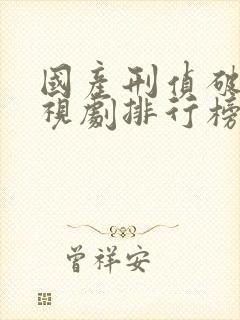 國產刑偵破
視劇排行榜
曾祥安